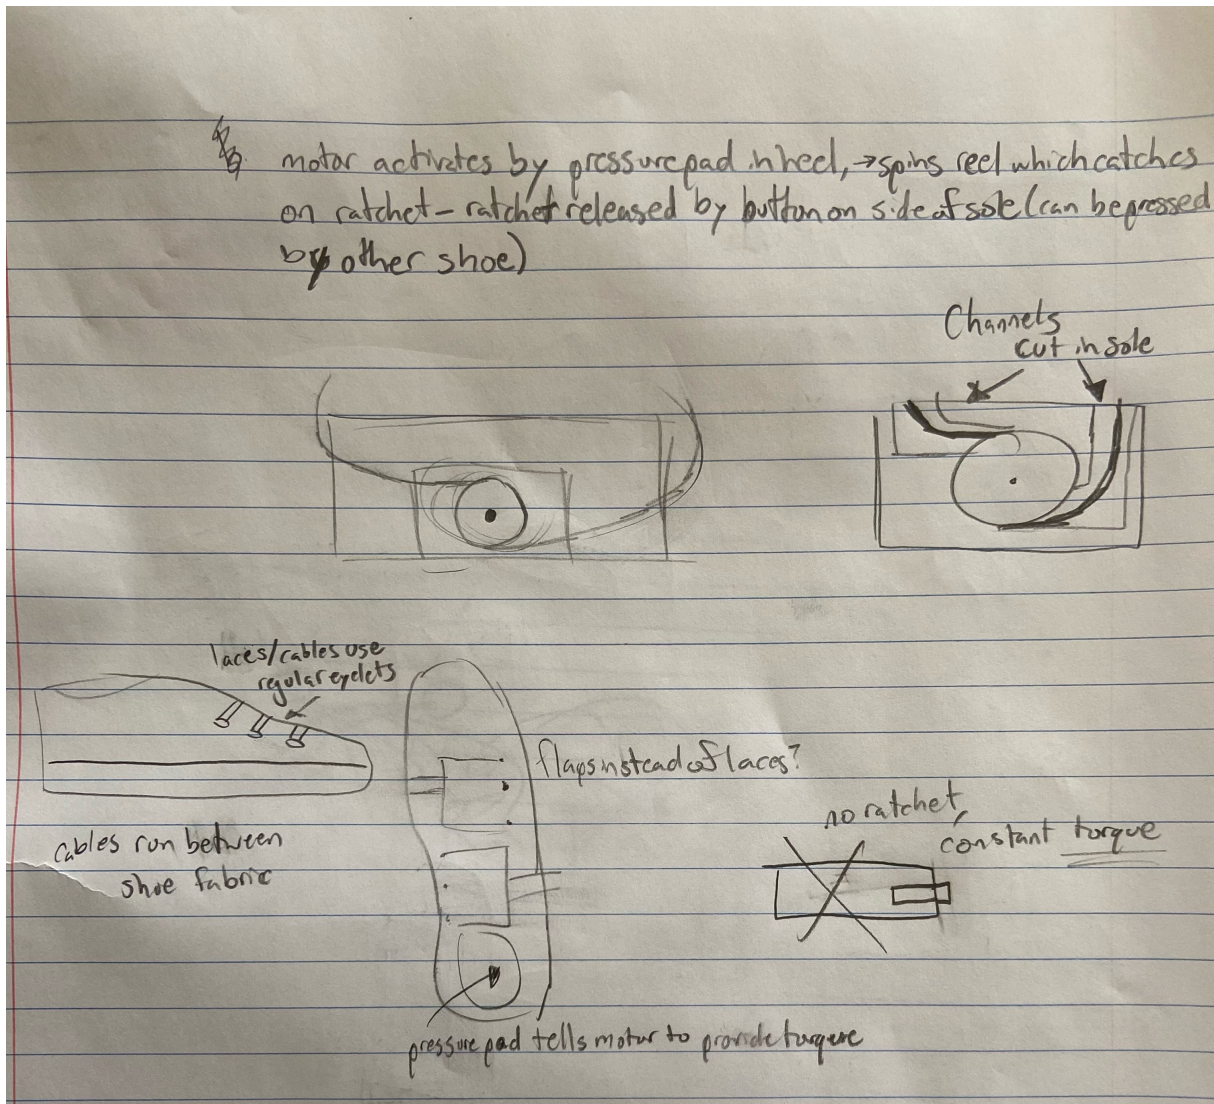 motor activates by pressure pad in heel, → spins reel which catches
on ratchet - ratchet released by button on side of sole (can be pressed
by other shoe)
Channels
cut in sole
laces/cables use
regular eyelets
flaps instead of laces?
no ratchet,
constant torque
cables run between
shoe fabric
pressure pad tells motor to provide torque